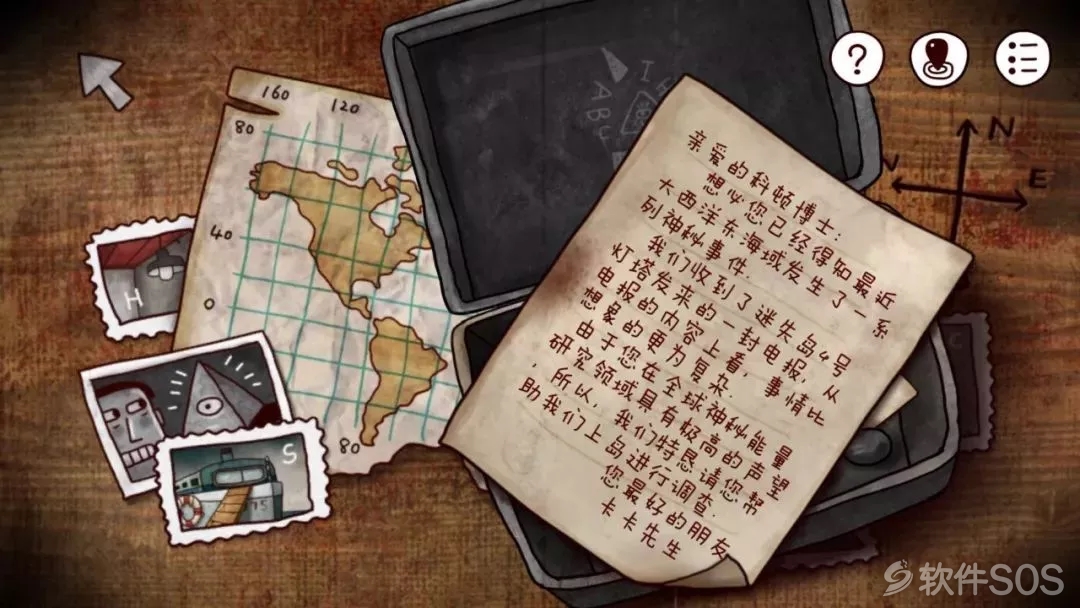 160
120
80
40
0
80
H
S
15
ABU
I
N
E
?
亲爱的科顿博士.
想必您已经得知最近
大西洋东海域发生了一系
列神秘事件.
我们收到了谜失岛4号
灯塔发来的一封电报,从
电报的内容上看,事情比
想象的更为复杂.
由于您在全球神秘能量
研究领域具有极高的声望
,所以,我们特恳请您帮
助我们上岛进行调查.
您最好的朋友
卡卡先生
软件SOS